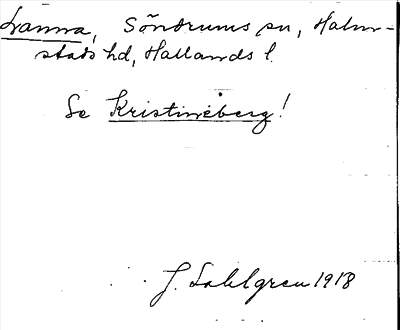 Lanna, Söndrums sn, Halm-
stads hd, Hallands l.
Se Kristineberg!
J. Sahlgren 1918